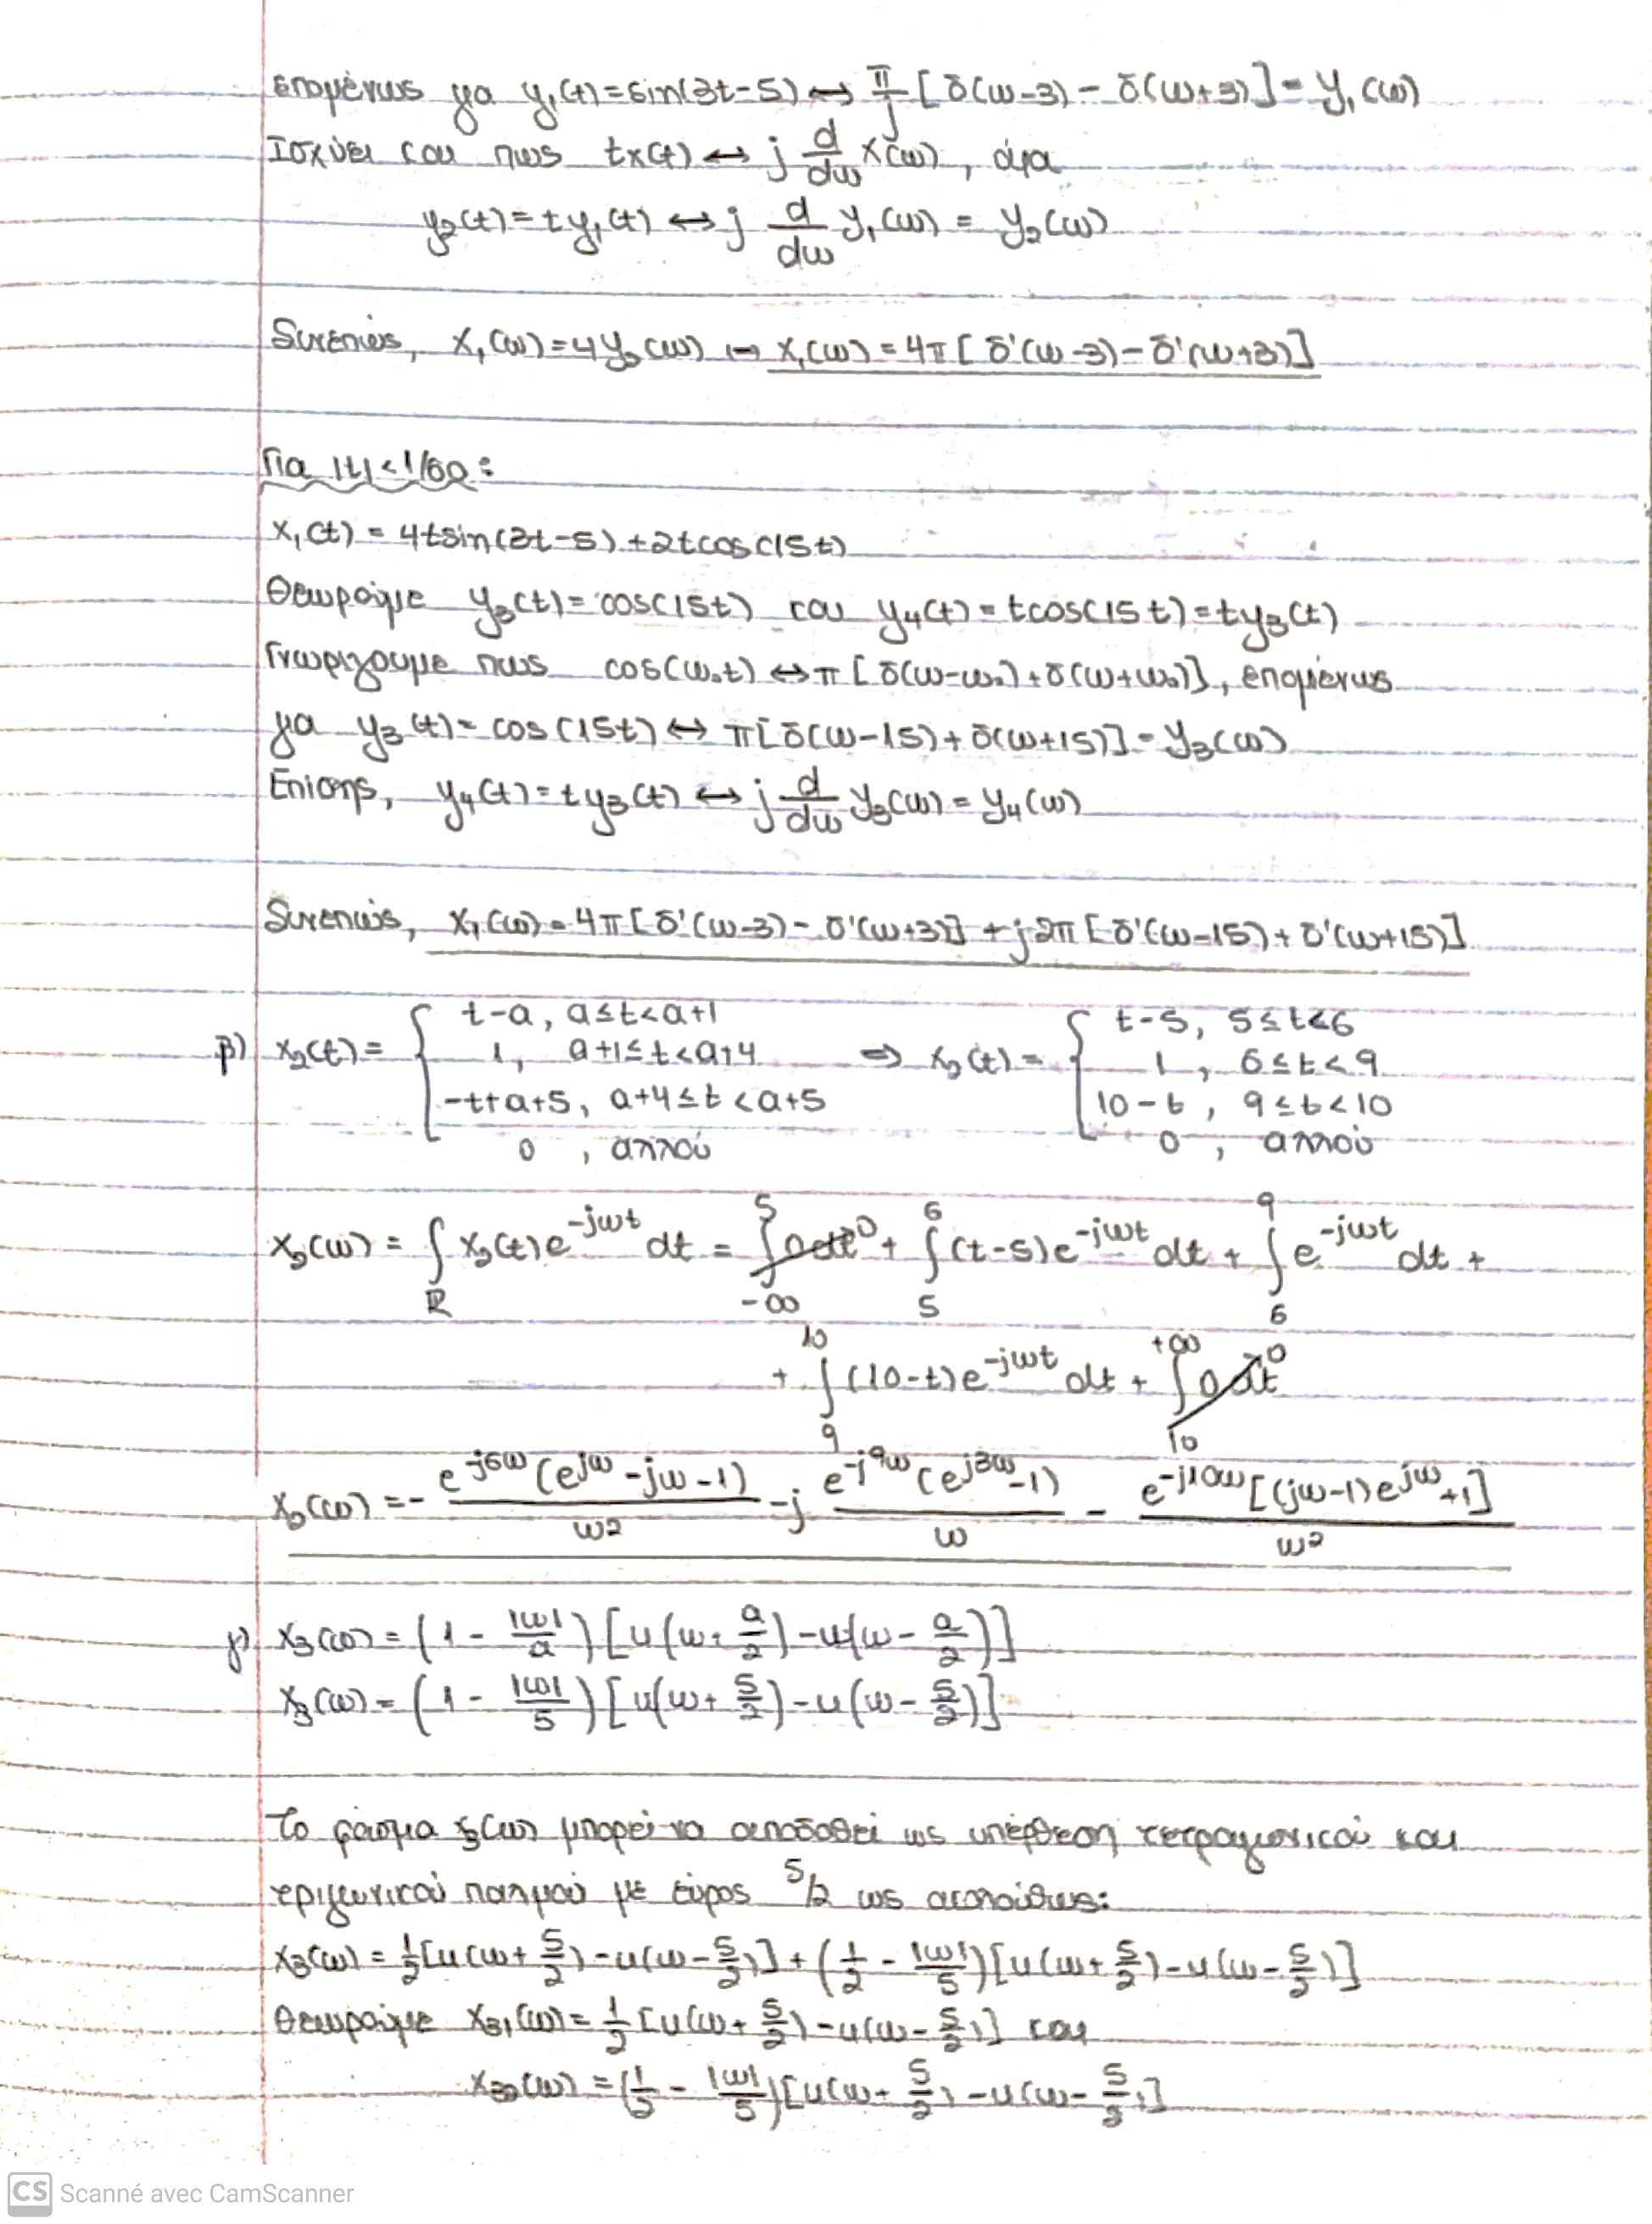 επομένως για y₁(t)=sin(3t-5) ↔ π/j [δ(ω-3) - δ(ω+3)] = Y₁(ω)
Ισχύει και πως tx(t) ↔ j d/dω X(ω), άρα
y₂(t)=ty₁(t) ↔ j d/dω Y₁(ω) = Y₂(ω)
Συνεπώς, X₁(ω)=4Y₂(ω) ↦ X₁(ω)=4π[δ'(ω-3)-δ'(ω+3)]
Για |t|<1/60:
x₁(t) = 4tsin(3t-5)+2tcos(15t)
Θεωρούμε y₃(t)=cos(15t) και y₄(t)=tcos(15t)=ty₃(t)
Γνωρίζουμε πως cos(ω₀t) ↔ π[δ(ω-ω₀)+δ(ω+ω₀)], επομένως
για y₃(t)=cos(15t) ↔ π[δ(ω-15)+δ(ω+15)]=Y₃(ω)
Επίσης, y₄(t)=ty₃(t) ↔ j d/dω Y₃(ω)=Y₄(ω)
Συνεπώς, X₁(ω)=4π[δ'(ω-3)-δ'(ω+3)]+j2π[δ'(ω-15)+δ'(ω+15)]
β) x₂(t)= { t-a, a≤t<a+1 ⇒ x₂(t)= { t-5, 5≤t<6
1, a+1≤t<a+4 1, 6≤t<9
-t+a+5, a+4≤t<a+5 10-t, 9≤t<10
0, αλλού 0, αλλού
X₂(ω) = ∫_R x₂(t)e^(-jωt) dt = ∫_(-∞)^5 0dt→0 + ∫_5^6 (t-5)e^(-jωt) dt + ∫_6^9 e^(-jωt) dt +
+ ∫_9^10 (10-t)e^(-jωt) dt + ∫_10^(+∞) 0dt→0
X₂(ω) = - e^(-j6ω)(e^(jω)-jω-1)/ω² - j e^(-j9ω)(e^(j3ω)-1)/ω - e^(-j10ω)[(jω-1)e^(jω)+1]/ω²
γ) X₃(ω) = (1 - |ω|/a)[u(ω+a/2)-u(ω-a/2)]
X₃(ω) = (1 - |ω|/5)[u(ω+5/2)-u(ω-5/2)]
Το φάσμα X₃(ω) μπορεί να αποδοθεί ως υπέρθεση τετραγωνικού και
τριγωνικού παλμού με εύρος 5/2 ως ακολούθως:
X₃(ω) = 1/2[u(ω+5/2)-u(ω-5/2)]+(1/2 - |ω|/5)[u(ω+5/2)-u(ω-5/2)]
Θεωρούμε X₃₁(ω)=1/2[u(ω+5/2)-u(ω-5/2)] και
X₃₂(ω)=(1/2 - |ω|/5)[u(ω+5/2)-u(ω-5/2)]
CS Scanné avec CamScanner